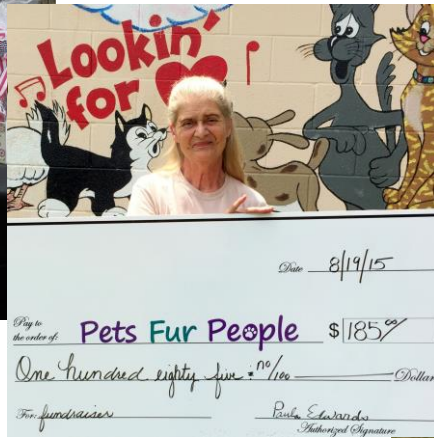 Lookin'
for
Date 8/19/15
Pay to
the order of: Pets Fur People $ 185 00/
One hundred eighty five & no/100 Dollar
For: fundraiser Paula Edwards
Authorized Signature